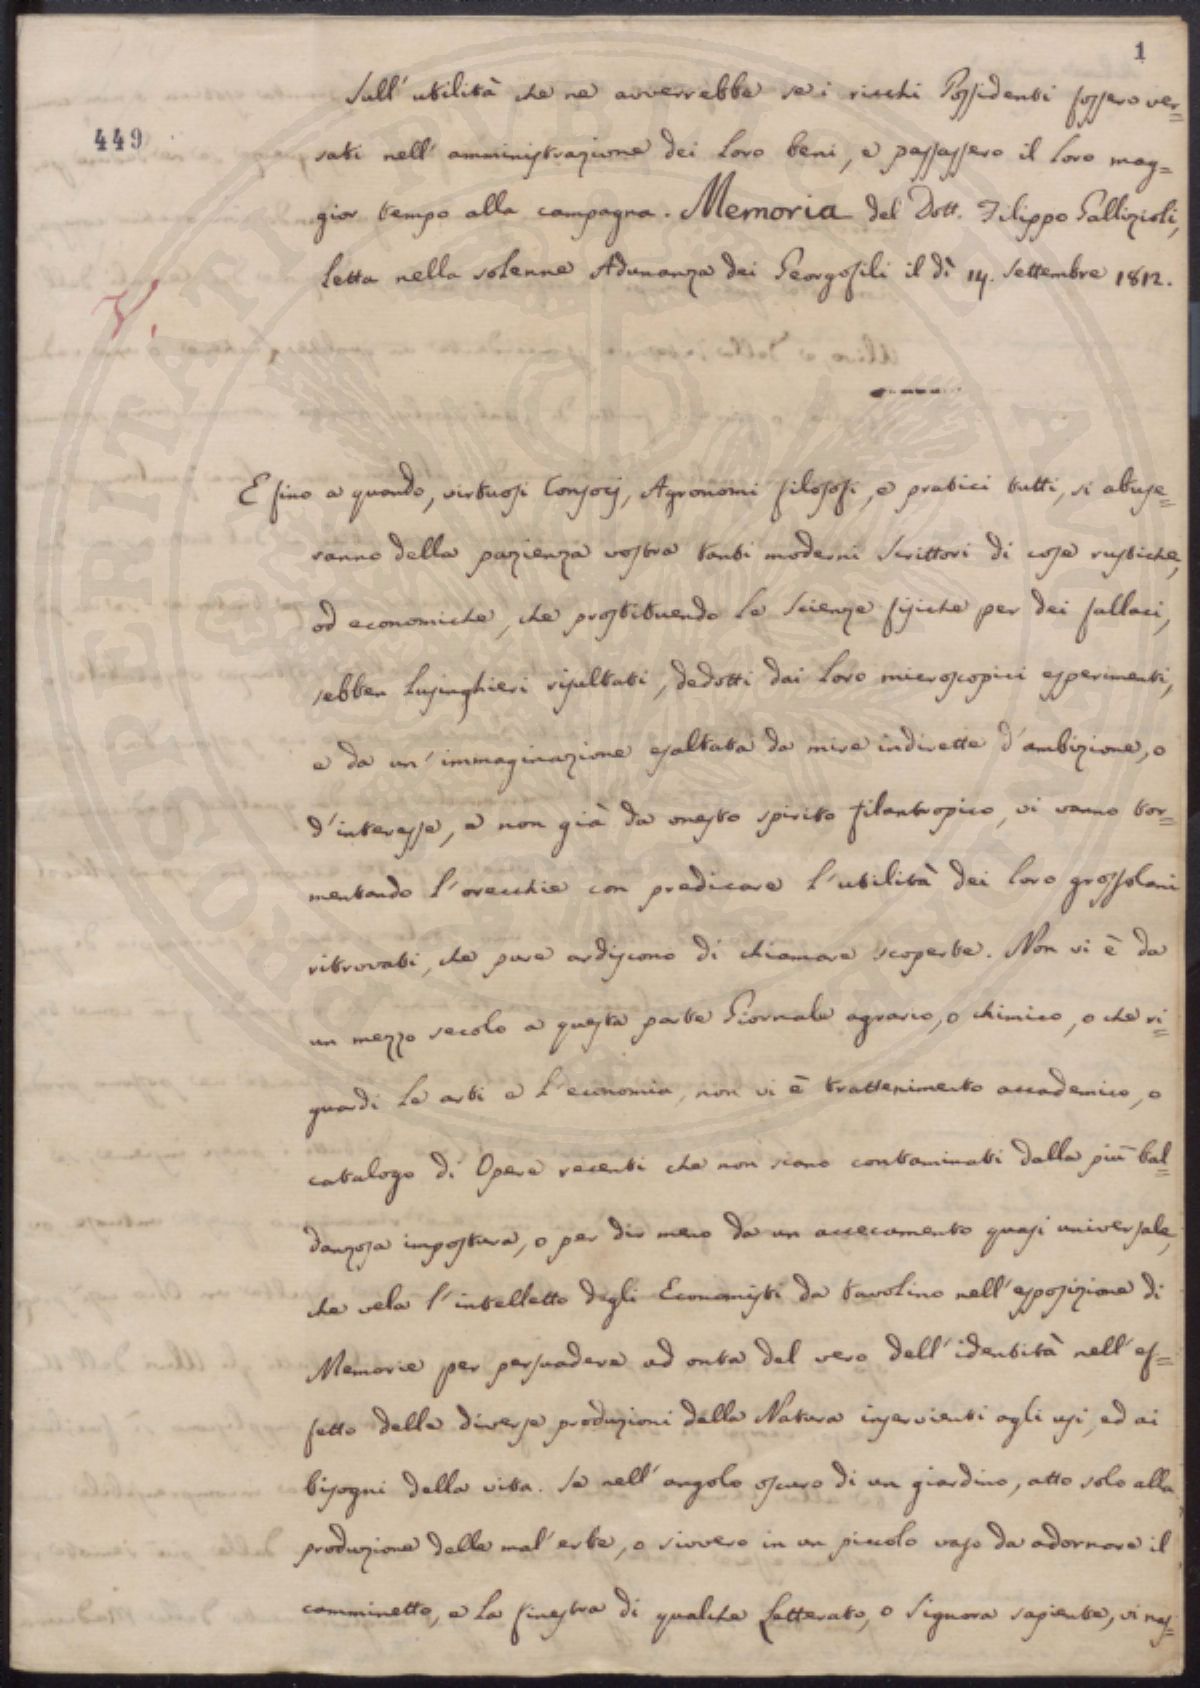 1
Sull' utilità che ne avverrebbe se i ricchi Possidenti fossero ver=
449
sati nell' amministrazione dei loro beni, e passassero il loro mag=
gior tempo alla campagna. Memoria del Dott. Filippo Gallizioli,
letta nella solenne Adunanza dei Georgofili il dì 14. Settembre 1812.
V.
E fino a quando, virtuosi Consocj, Agronomi filosofi, e pratici tutti, si abuse=
ranno della pazienza vostra tanti moderni Scrittori di cose rustiche,
od economiche, che prostituendo le Scienze fisiche per dei fallaci,
sebben lusinghieri risultati, dedotti dai loro microscopici esperimenti,
e da un' immaginazione esaltata da mire indirette d'ambizione, o
d'interesse, e non già da onesto spirito filantropico, vi vanno tor=
mentando l'orecchie con predicare l'utilità dei loro grossolani
ritrovati, che pure ardiscono di chiamare scoperte. Non vi è da
un mezzo secolo a questa parte Giornale agrario, o chimico, o che ri=
guardi le arti e l'economia, non vi è trattenimento accademico, o
catalogo di Opere recenti che non siano contaminati dalla più bal=
danzosa impostura, o per dir meno da un accecamento quasi universale,
che vela l'intelletto degli Economisti da tavolino nell'esposizione di
Memorie per persuadere ad onta del vero dell'identità nell'ef=
fetto delle diverse produzioni della Natura inservienti agli usi, ed ai
bisogni della vita. Se nell'angolo oscuro di un giardino, atto solo alla
produzione delle mal'erbe, o sivvero in un piccolo vaso da adornare il
camminetto, e la finestra di qualche Letterato, o Signora sapiente, vi nas=